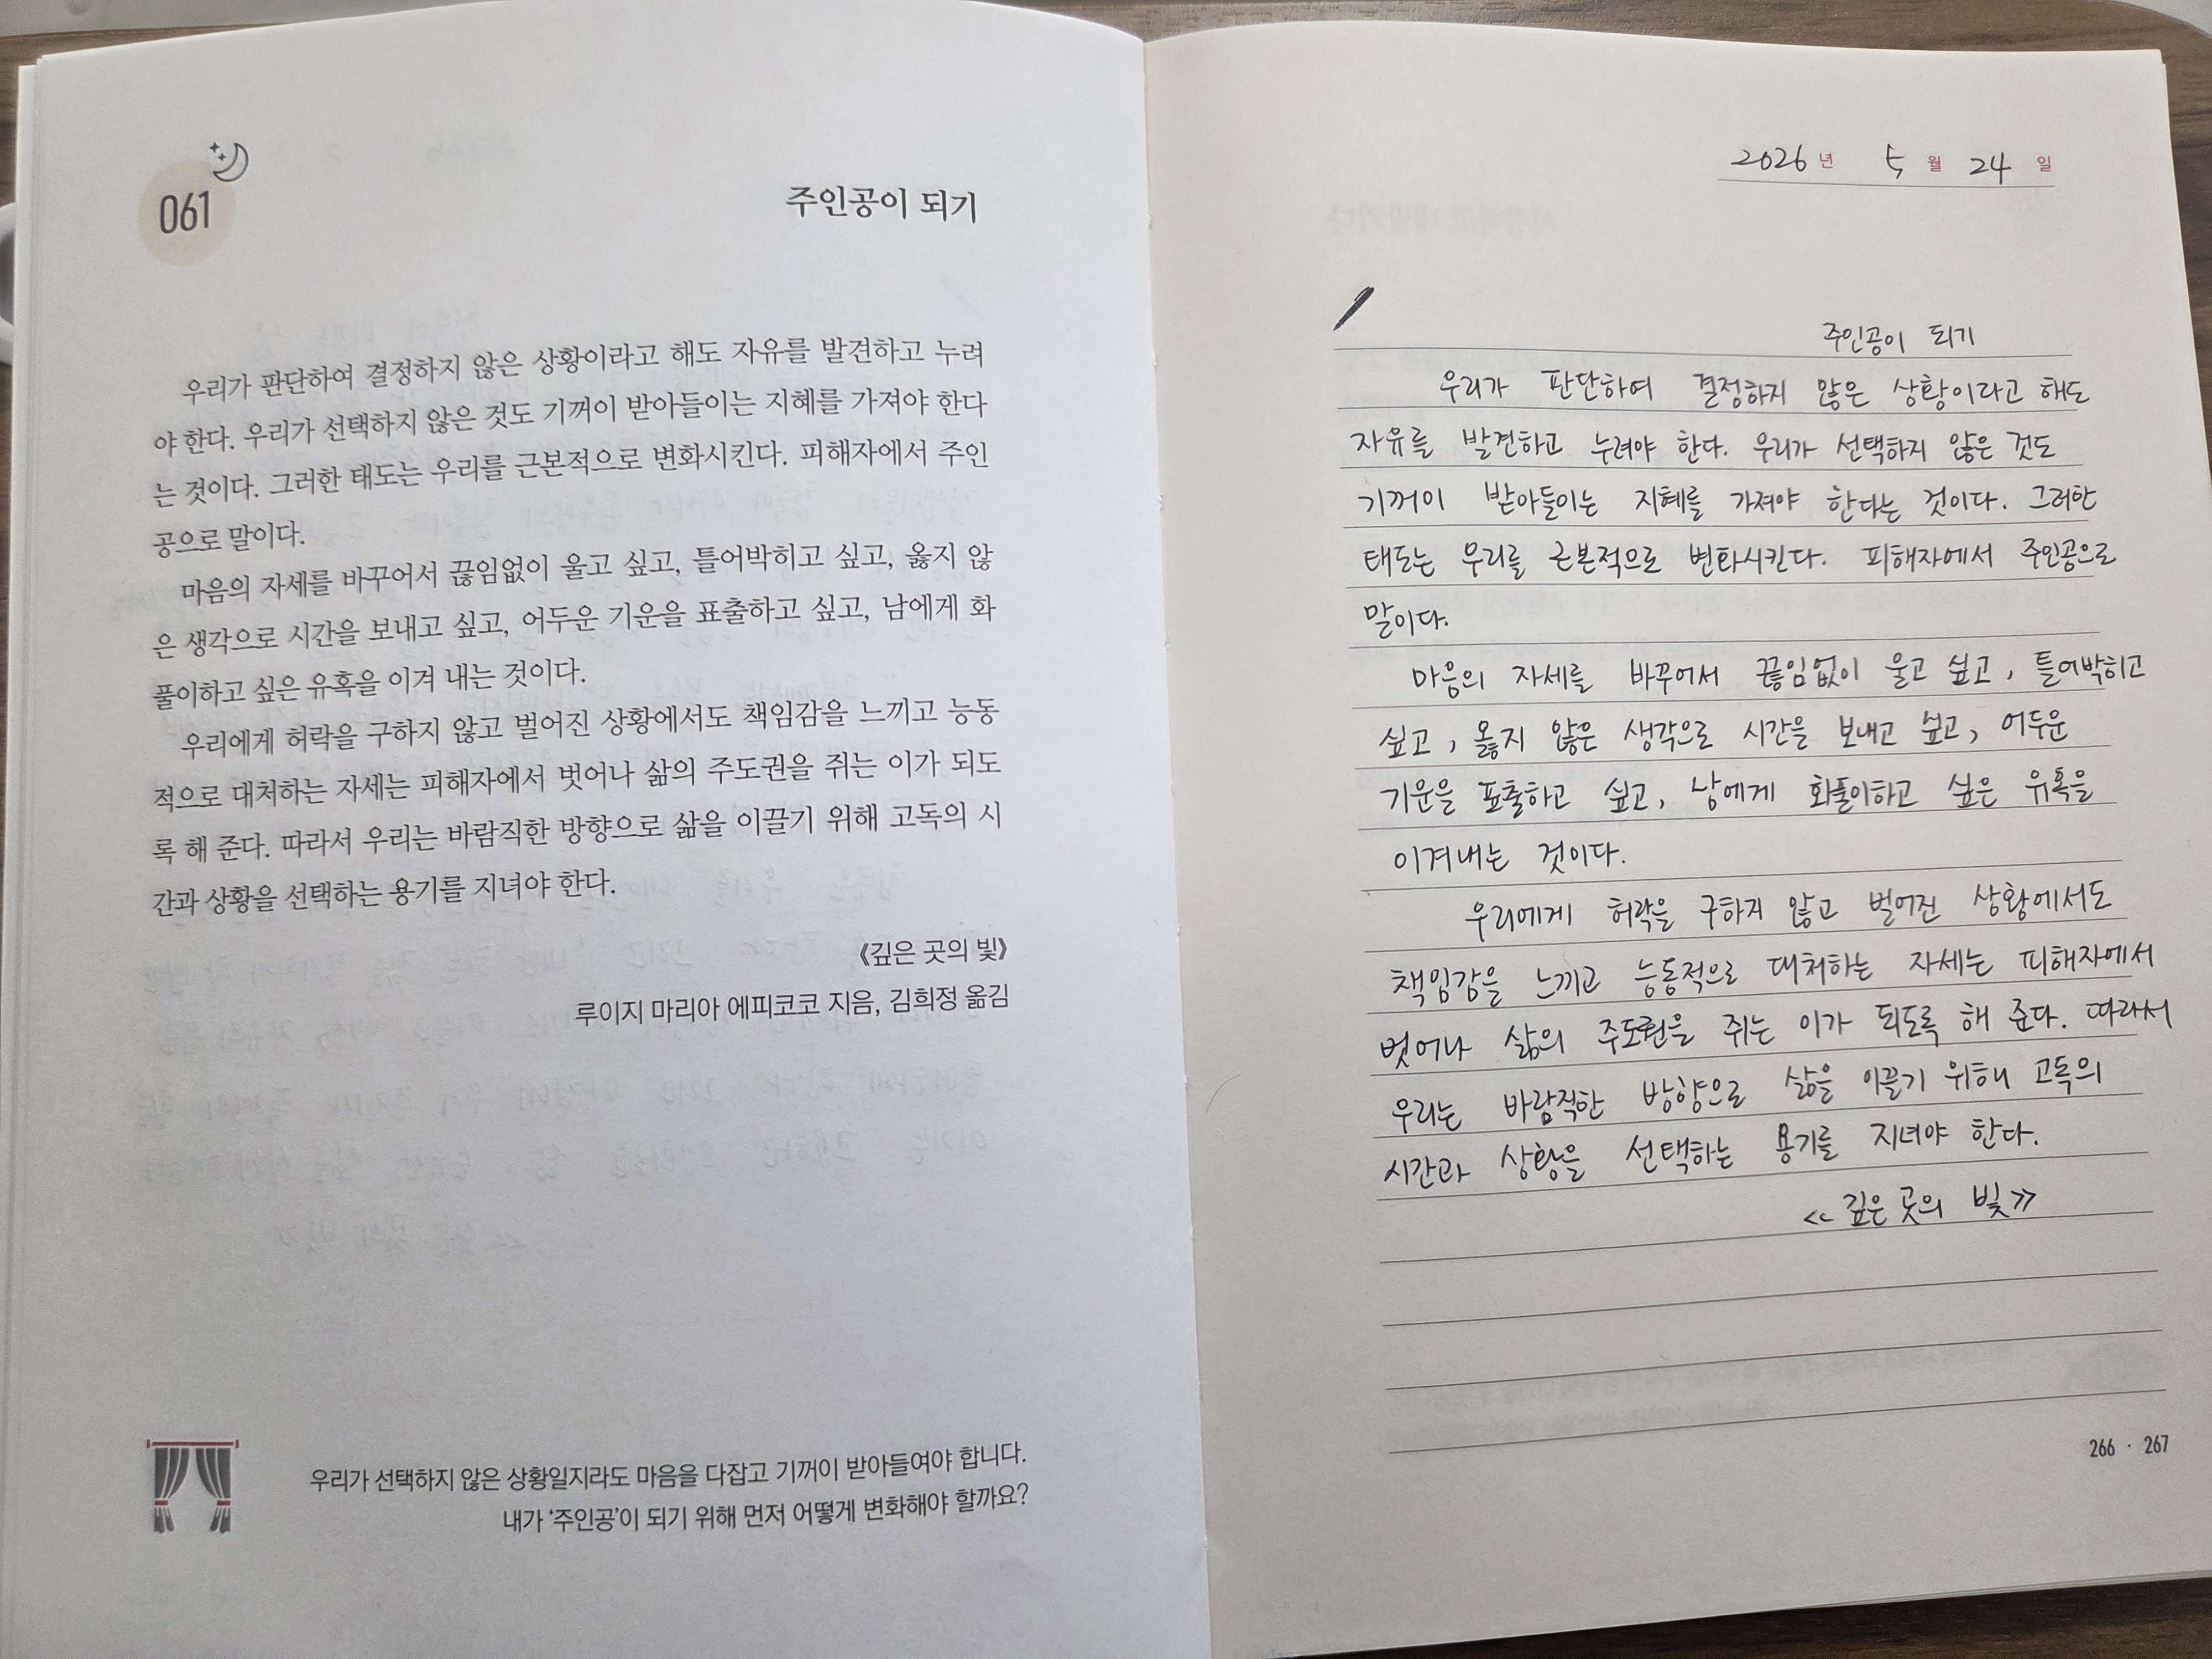 061
주인공이 되기
우리가 판단하여 결정하지 않은 상황이라고 해도 자유를 발견하고 누려
야 한다. 우리가 선택하지 않은 것도 기꺼이 받아들이는 지혜를 가져야 한다
는 것이다. 그러한 태도는 우리를 근본적으로 변화시킨다. 피해자에서 주인
공으로 말이다.
마음의 자세를 바꾸어서 끊임없이 울고 싶고, 틀어박히고 싶고, 옳지 않
은 생각으로 시간을 보내고 싶고, 어두운 기운을 표출하고 싶고, 남에게 화
풀이하고 싶은 유혹을 이겨 내는 것이다.
우리에게 허락을 구하지 않고 벌어진 상황에서도 책임감을 느끼고 능동
적으로 대처하는 자세는 피해자에서 벗어나 삶의 주도권을 쥐는 이가 되도
록 해 준다. 따라서 우리는 바람직한 방향으로 삶을 이끌기 위해 고독의 시
간과 상황을 선택하는 용기를 지녀야 한다.
《깊은 곳의 빛》
루이지 마리아 에피코코 지음, 김희정 옮김
우리가 선택하지 않은 상황일지라도 마음을 다잡고 기꺼이 받아들여야 합니다.
내가 ‘주인공’이 되기 위해 먼저 어떻게 변화해야 할까요?
2026년 5월 24일
주인공이 되기
우리가 판단하여 결정하지 않은 상황이라고 해도
자유를 발견하고 누려야 한다. 우리가 선택하지 않은 것도
기꺼이 받아들이는 지혜를 가져야 한다는 것이다. 그러한
태도는 우리를 근본적으로 변화시킨다. 피해자에서 주인공으로
말이다.
마음의 자세를 바꾸어서 끊임없이 울고 싶고, 틀어박히고
싶고, 옳지 않은 생각으로 시간을 보내고 싶고, 어두운
기운을 표출하고 싶고, 남에게 화풀이하고 싶은 유혹을
이겨내는 것이다.
우리에게 허락을 구하지 않고 벌어진 상황에서도
책임감을 느끼고 능동적으로 대처하는 자세는 피해자에서
벗어나 삶의 주도권을 쥐는 이가 되도록 해 준다. 따라서
우리는 바람직한 방향으로 삶을 이끌기 위해 고독의
시간과 상황을 선택하는 용기를 지녀야 한다.
<<깊은 곳의 빛>>
266 · 267